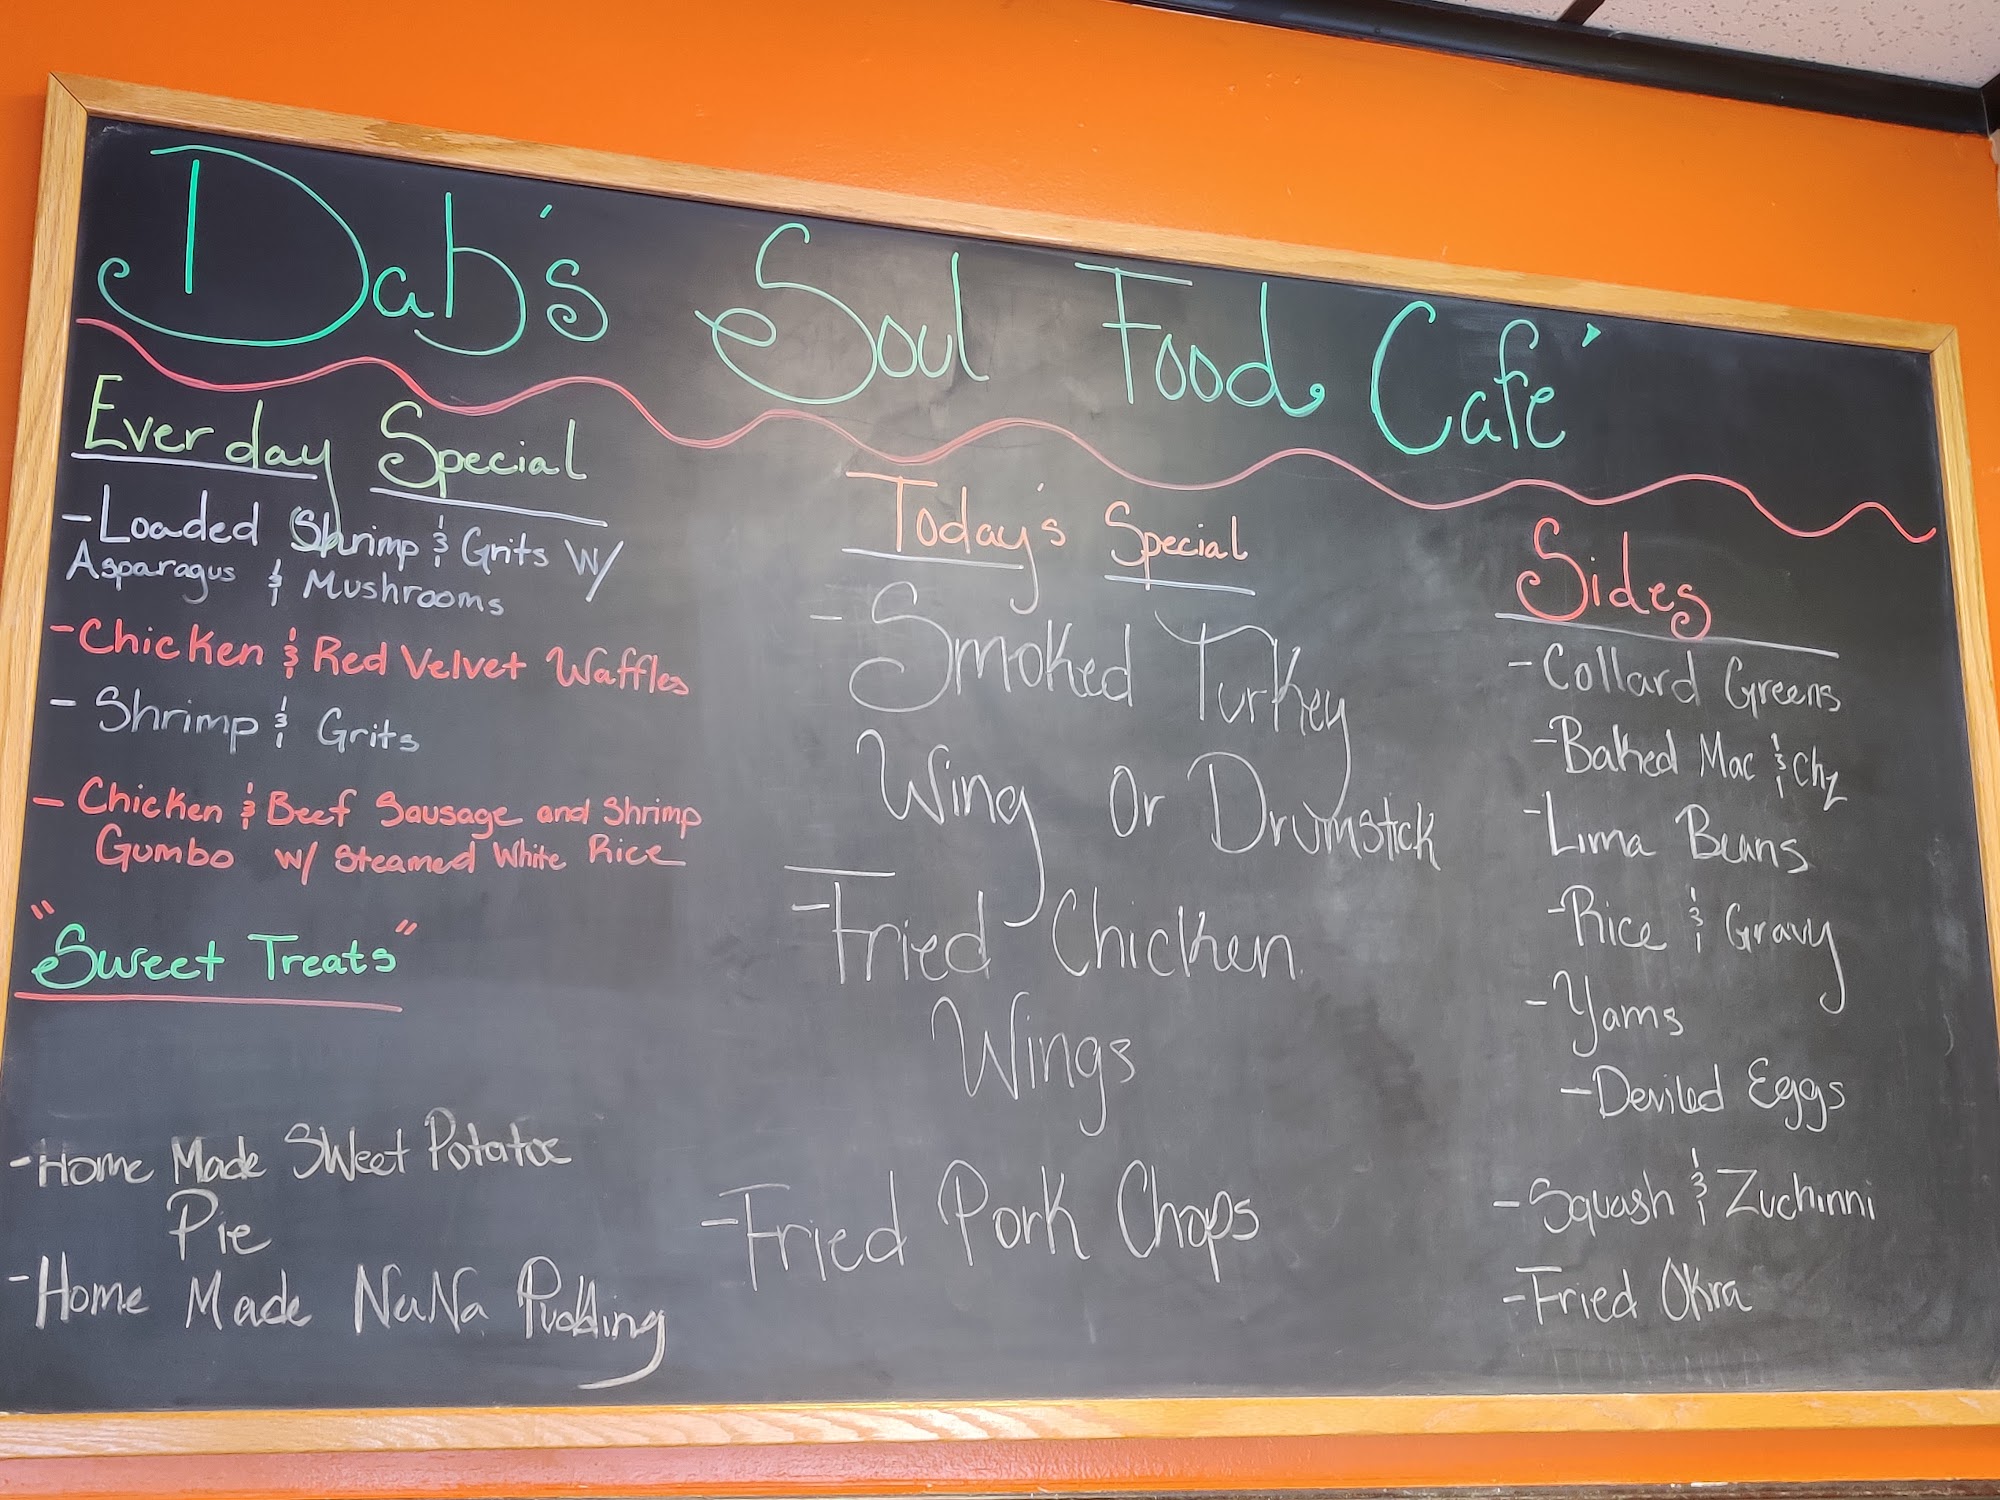 Dab's Soul Food Cafe'
Everday Special
-Loaded Shrimp & Grits W/
Asparagus & Mushrooms
-Chicken & Red Velvet Waffles
- Shrimp & Grits
- Chicken & Beef Sausage and Shrimp
Gumbo w/ Steamed White Rice
"Sweet Treats"
-Home Made Sweet Potatoe
Pie
-Home Made NaNa Pudding
Today's Special
-Smoked Turkey
Wing Or Drumstick
-Fried Chicken
Wings
-Fried Pork Chops
Sides
-Collard Greens
-Baked Mac & Chz
-Lima Beans
-Rice & Gravy
-Yams
-Deviled Eggs
-Squash & Zuchinni
-Fried Okra